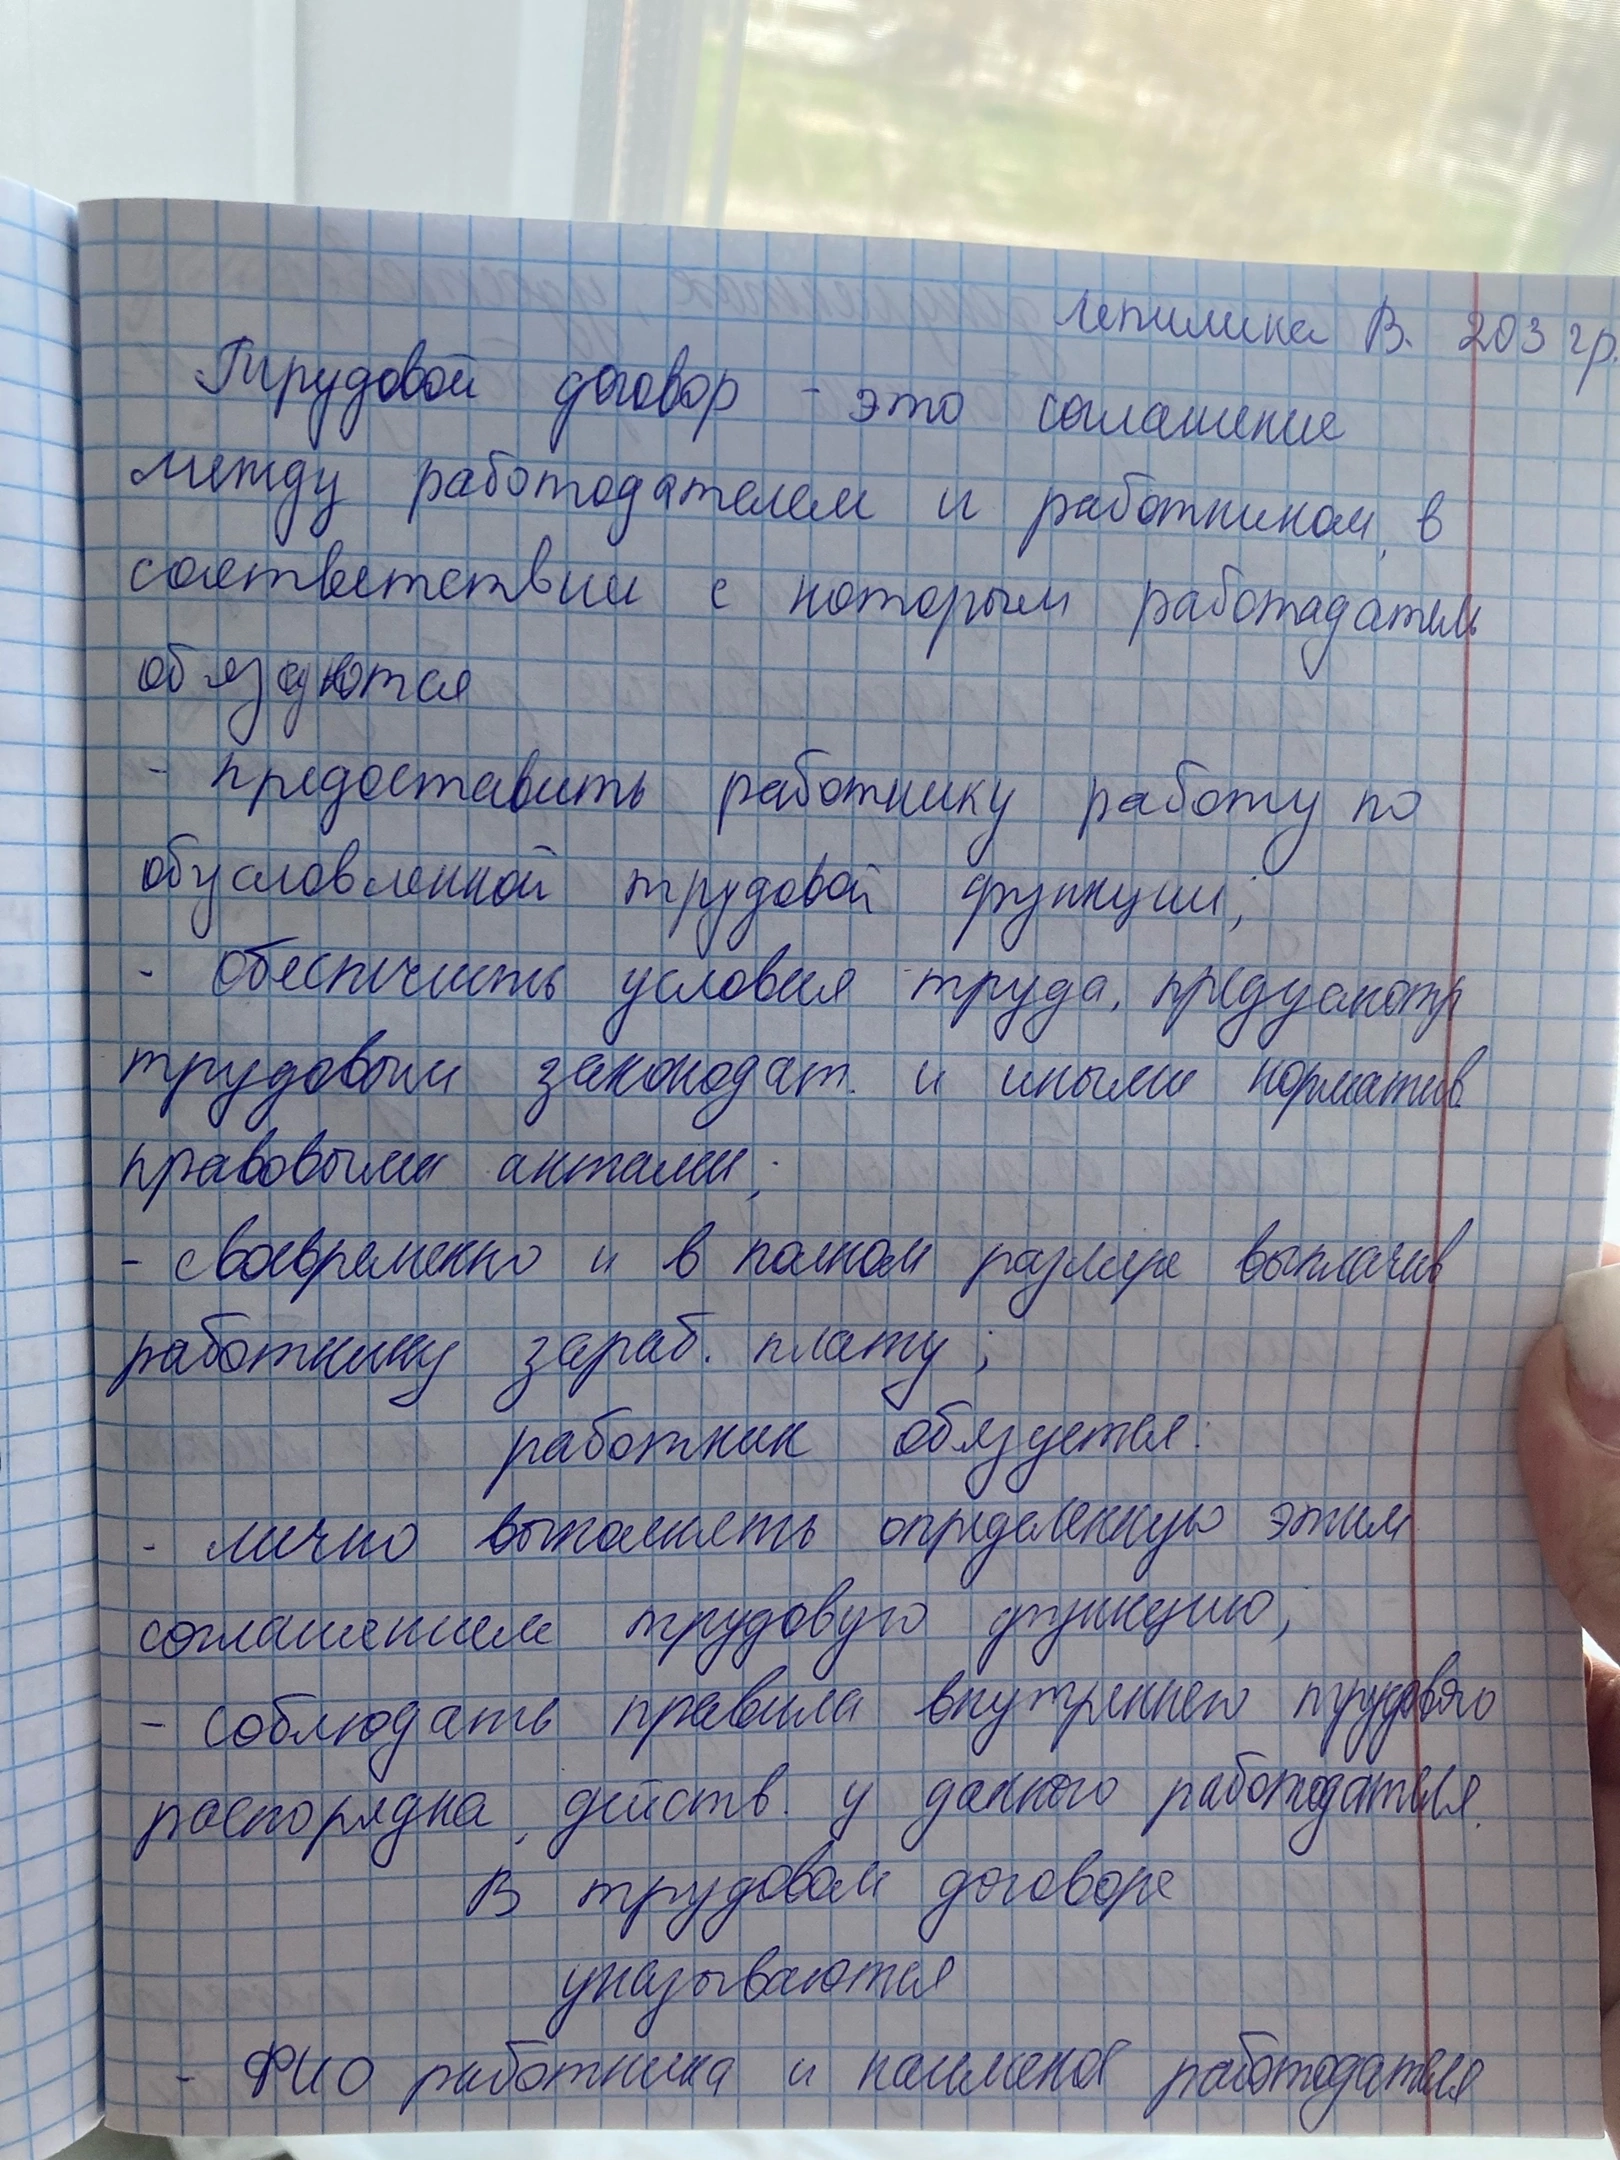 Лепилина В. 203 гр.
Трудовой договор - это соглашение
между работодателем и работником, в
соответствии с которым работадатель
обязуются
- предоставить работнику работу по
обусловленной трудовой функции;
- обеспечить условия труда, предусмотр
трудовым законодат. и иными норматив.
правовыми актами;
- своевременно и в полном размере выплачив
работнику зараб. плату;
работник обязуется:
- лично выполнять определенную этим
соглашением трудовую функцию;
- соблюдать правила внутреннего трудового
распорядка, действ. у данного работодателя.
В трудовом договоре
указываются
- ФИО работника и наименов работодателя